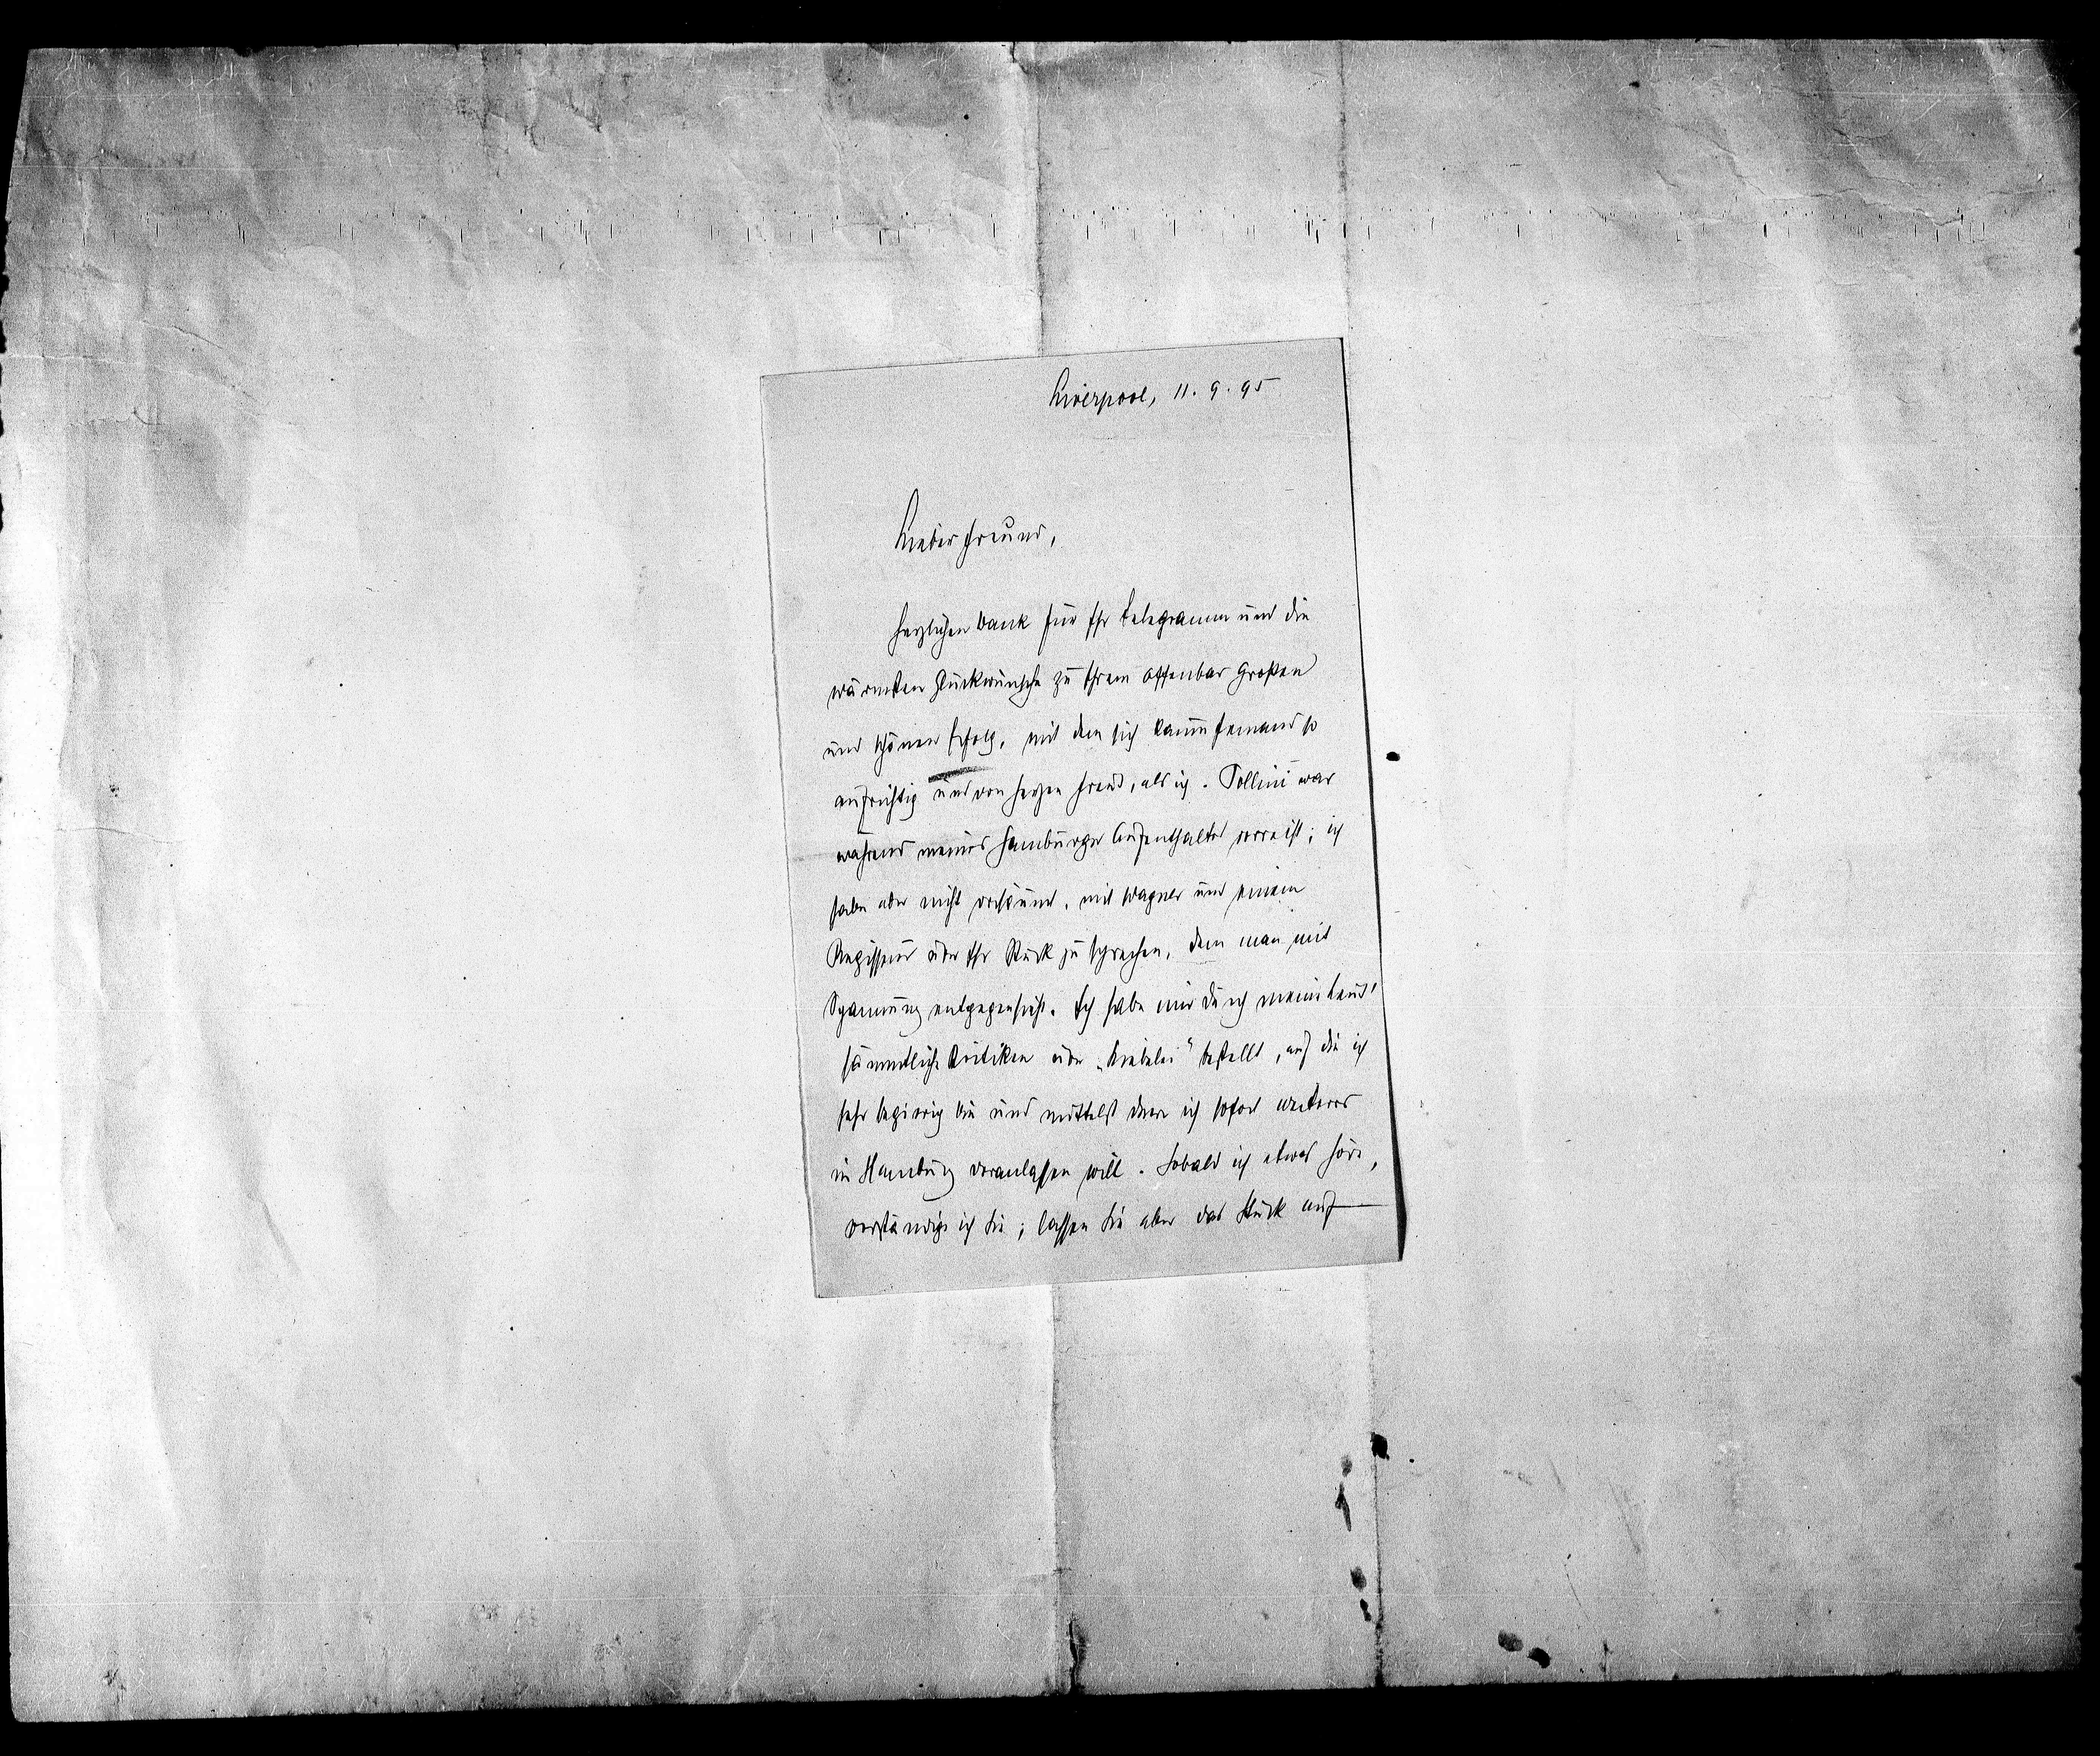 Liverpool, 11. 9. 95
Lieber Freund,
herzlichen Dank für Ihr Telegramm und die
wärmsten Glückwünsche zu Ihrem offenbar großen
und schönen Erfolg, mit dem sich kaum Jemand so
aufrichtig und von Herzen freut, als ich. Pollini war
während meines Hamburger Aufenthaltes verreist; ich
habe aber nicht versäumt, mit Wagner und einem
Regisseur über Ihr Stück zu sprechen, dem man mit
Spannung entgegensieht. Ich habe mir durch meine Leut'
sämmtliche Kritiken über „Liebelei“ bestellt, auf die ich
sehr begierig bin und mittelst derer ich sofort weiteres
in Hamburg veranlassen will. Sobald ich etwas höre,
verständige ich Sie; lassen Sie aber das Stück auf